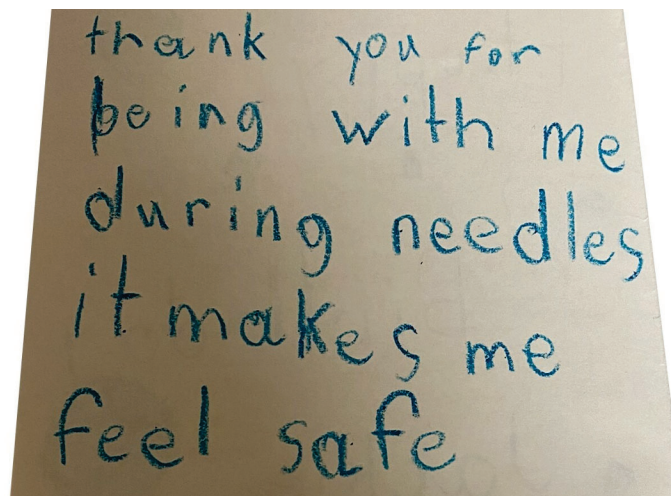 thank you for
being with me
during needles
it makes me
feel safe